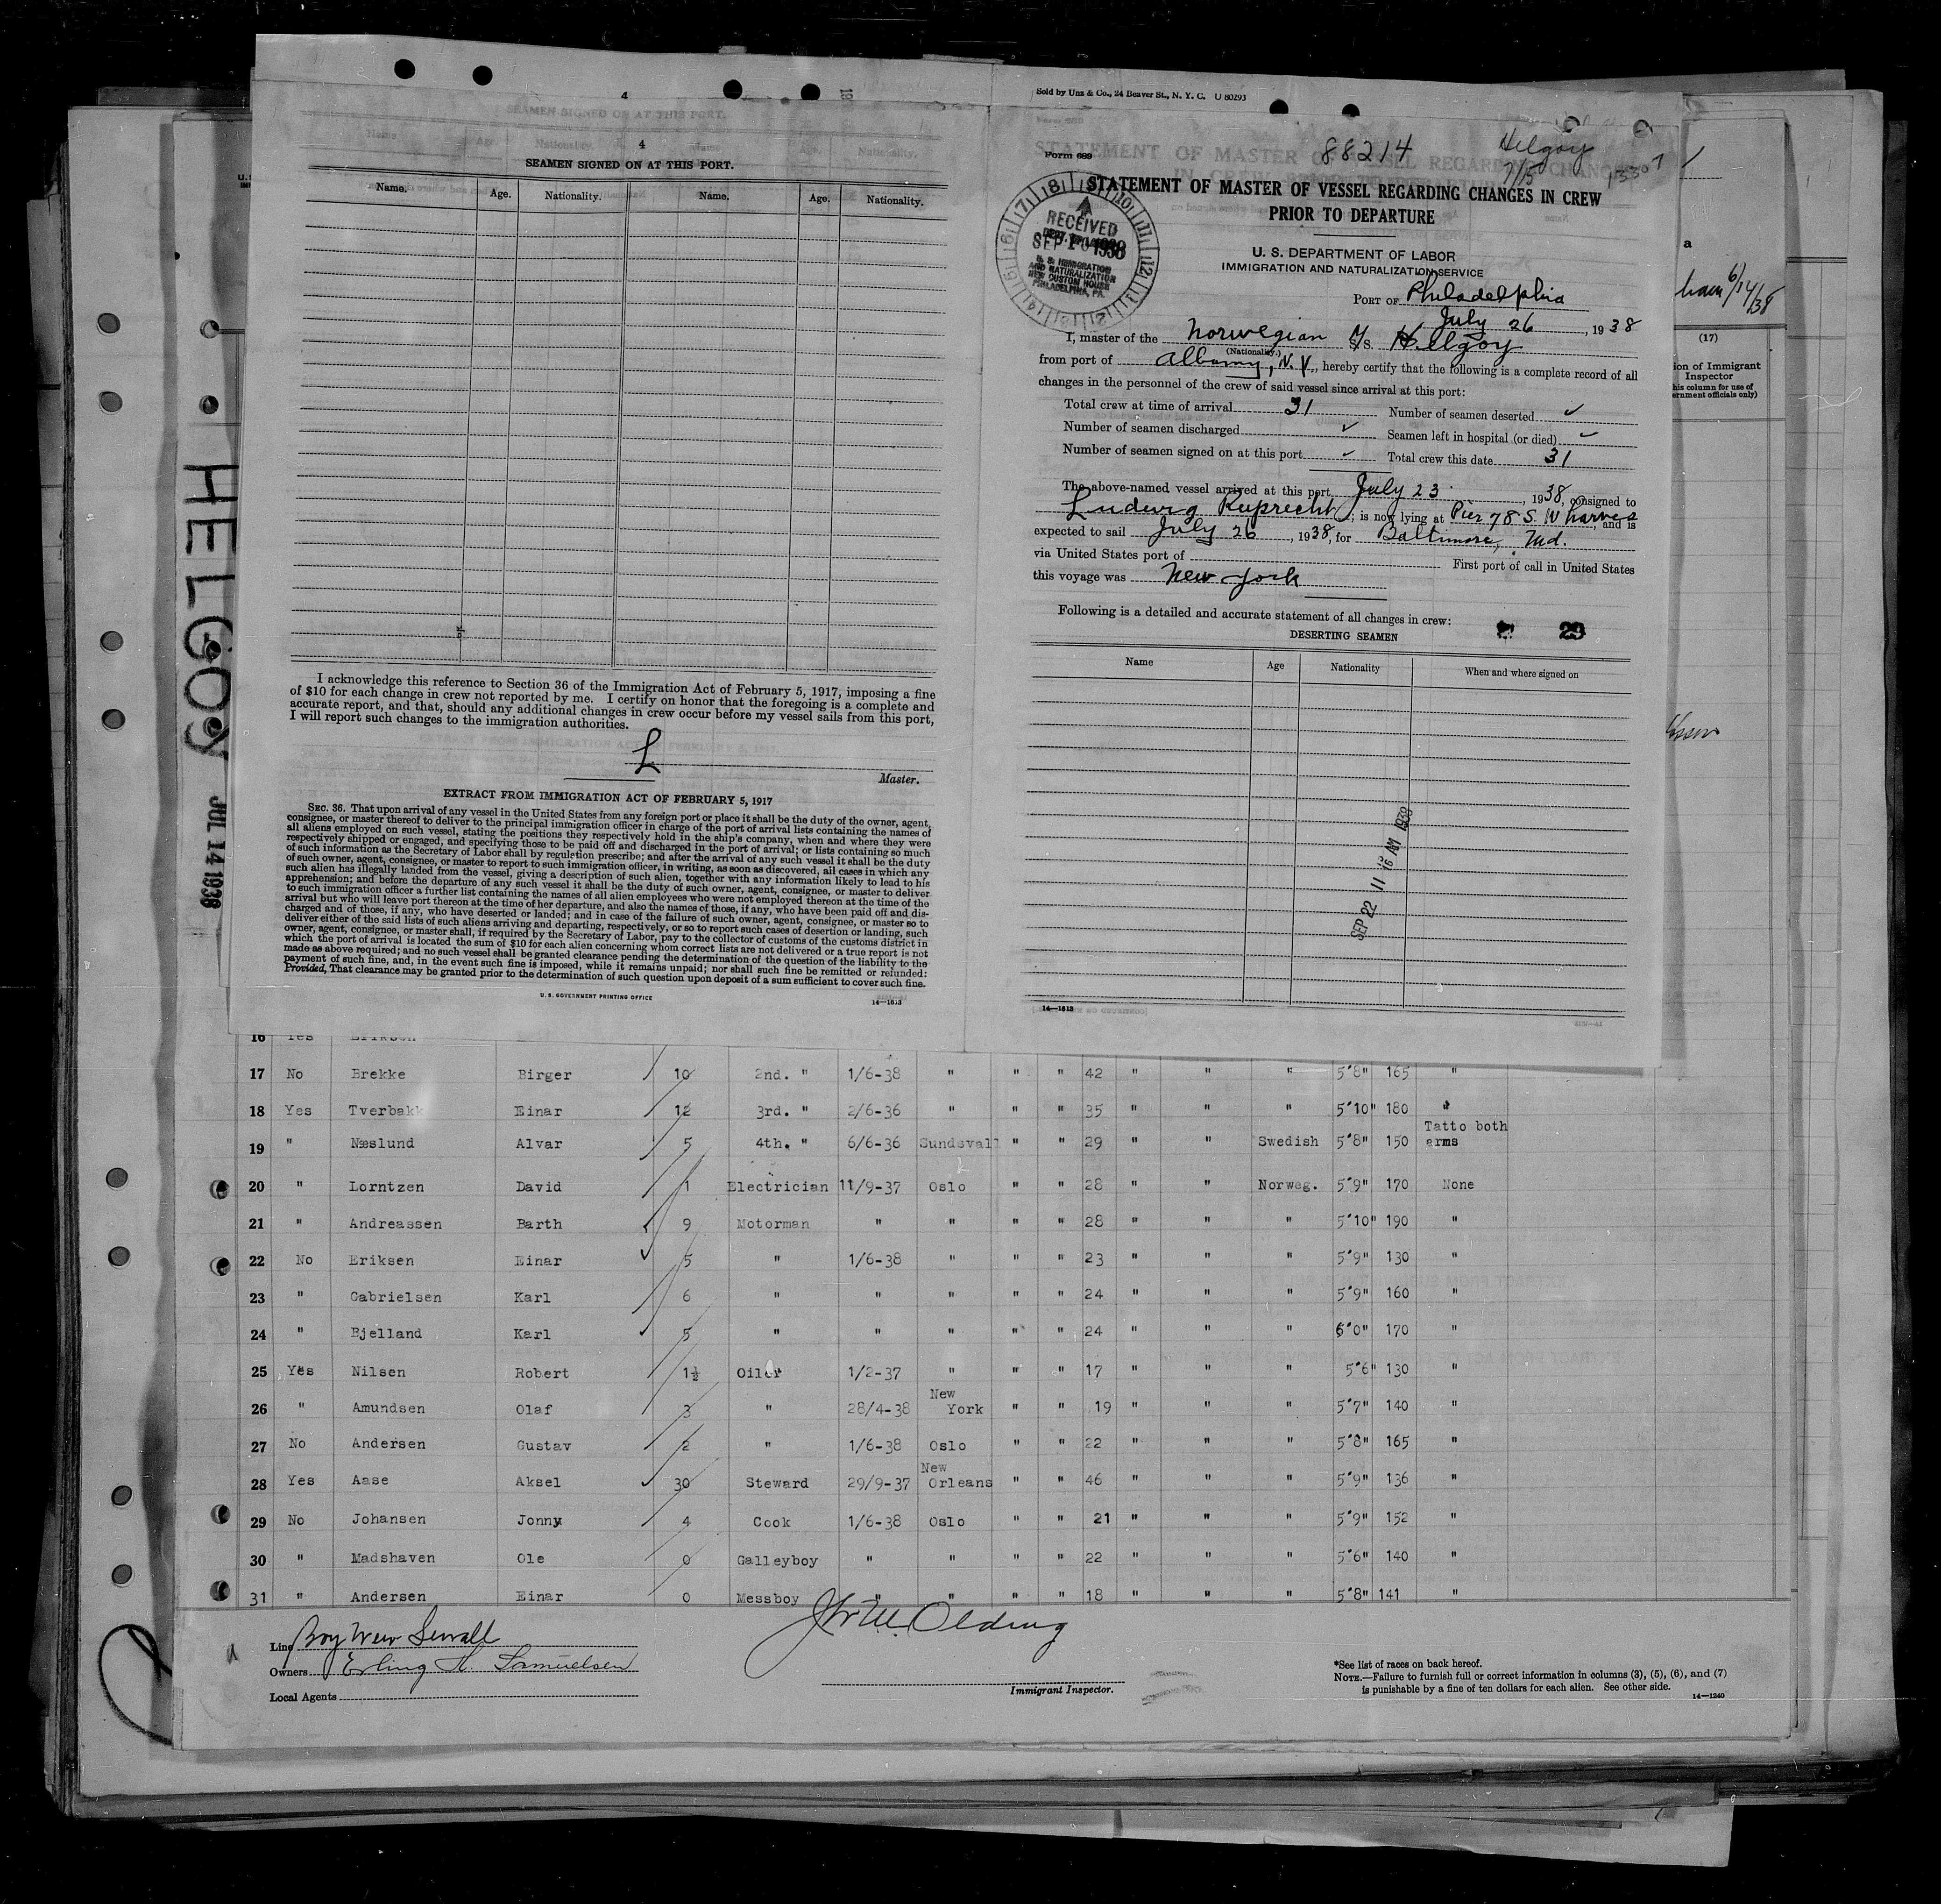 4
SEAMEN SIGNED ON AT THIS PORT.
Name. Age. Nationality. Name. Age. Nationality.
I acknowledge this reference to Section 36 of the Immigration Act of February 5, 1917, imposing a fine
of $10 for each change in crew not reported by me. I certify on honor that the foregoing is a complete and
accurate report, and that, should any additional changes in crew occur before my vessel sails from this port,
I will report such changes to the immigration authorities.
L
Master.
EXTRACT FROM IMMIGRATION ACT OF FEBRUARY 5, 1917
SEC. 36. That upon arrival of any vessel in the United States from any foreign port or place it shall be the duty of the owner, agent,
consignee, or master thereof to deliver to the principal immigration officer in charge of the port of arrival lists containing the names of
all aliens employed on such vessel, stating the positions they respectively hold in the ship's company, when and where they were
respectively shipped or engaged, and specifying those to be paid off and discharged in the port of arrival; or lists containing so much
of such information as the Secretary of Labor shall by reguletion prescribe; and after the arrival of any such vessel it shall be the duty
of such owner, agent, consignee, or master to report to such immigration officer, in writing, as soon as discovered, all cases in which any
such alien has illegally landed from the vessel, giving a description of such alien, together with any information likely to lead to his
apprehension; and before the departure of any such vessel it shall be the duty of such owner, agent, consignee, or master to deliver
to such immigration officer a further list containing the names of all alien employees who were not employed thereon at the time of the
arrival but who will leave port thereon at the time of her departure, and also the names of those, if any, who have been paid off and dis-
charged and of those, if any, who have deserted or landed; and in case of the failure of such owner, agent, consignee, or master so to
deliver either of the said lists of such aliens arriving and departing, respectively, or so to report such cases of desertion or landing, such
owner, agent, consignee, or master shall, if required by the Secretary of Labor, pay to the collector of customs of the customs district in
which the port of arrival is located the sum of $10 for each alien concerning whom correct lists are not delivered or a true report is not
made as above required; and no such vessel shall be granted clearance pending the determination of the question of the liability to the
payment of such fine, and, in the event such fine is imposed, while it remains unpaid; nor shall such fine be remitted or refunded:
Provided, That clearance may be granted prior to the determination of such question upon deposit of a sum sufficient to cover such fine.
U. S. GOVERNMENT PRINTING OFFICE 14—1613
Sold by Unz & Co., 24 Beaver St., N. Y. C. U 80293
Form 689
88214
Helgoy
7/15
13307
STATEMENT OF MASTER OF VESSEL REGARDING CHANGES IN CREW
PRIOR TO DEPARTURE
RECEIVED
SEP 1938
U. S. IMMIGRATION
AND NATURALIZATION
NEW CUSTOM HOUSE
PHILADELPHIA, PA.
U. S. DEPARTMENT OF LABOR
IMMIGRATION AND NATURALIZATION SERVICE
PORT OF Philadelphia
July 26, 1938
I, master of the Norwegian M/S. Helgoy
(Nationality.)
from port of Albany, N.Y., hereby certify that the following is a complete record of all
changes in the personnel of the crew of said vessel since arrival at this port:
Total crew at time of arrival 31 Number of seamen deserted ✓
Number of seamen discharged ✓ Seamen left in hospital (or died) ✓
Number of seamen signed on at this port ✓ Total crew this date 31
The above-named vessel arrived at this port July 23, 1938, consigned to
Ludwig Ruprecht; is now lying at Pier 78 S. Wharves, and is
expected to sail July 26, 1938, for Baltimore, Md.
via United States port of First port of call in United States
this voyage was New York
Following is a detailed and accurate statement of all changes in crew:
29
DESERTING SEAMEN
Name Age Nationality When and where signed on
SEP 22 11 16 AM 1938
14—1613
a
6/14/38
(17)
ion of Immigrant
Inspector
his column for use of
ernment officials only)
HELGOY
JUL 14 1938
16 Yes Eriksen
17 No Brekke Birger 10 2nd. " 1/6-38 " " " 42 " " " 5'8" 165 "
18 Yes Tverbakk Einar 12 3rd. " 2/6-36 " " " 35 " " " 5'10" 180 "
19 " Næslund Alvar 5 4th. " 6/6-36 Sundsvall " " 29 " " Swedish 5'8" 150 Tatto both arms
20 " Lorntzen David 1 Electrician 11/9-37 Oslo " " 28 " " Norweg. 5'9" 170 None
21 " Andreassen Barth 9 Motorman " " " " 28 " " " 5'10" 190 "
22 No Eriksen Einar 5 " 1/6-38 " " " 23 " " " 5'9" 130 "
23 " Gabrielsen Karl 6 " " " " " 24 " " " 5'9" 160 "
24 " Bjelland Karl 5 " " " " " 24 " " " 6'0" 170 "
25 Yes Nilsen Robert 1½ Oiler 1/2-37 " " " 17 " " " 5'6" 130 "
26 " Amundsen Olaf 3 " 28/4-38 New York " " 19 " " " 5'7" 140 "
27 No Andersen Gustav 2 " 1/6-38 Oslo " " 22 " " " 5'8" 165 "
28 Yes Aase Aksel 30 Steward 29/9-37 New Orleans " " 46 " " " 5'9" 136 "
29 No Johansen Jonny 4 Cook 1/6-38 Oslo " " 21 " " " 5'9" 152 "
30 " Madshaven Ole 0 Galleyboy " " " " 22 " " " 5'6" 140 "
31 " Andersen Einar 0 Messboy " " " " 18 " " " 5'8" 141 "
Line
Owners Erling H. Samuelsen
Local Agents
Olding
Immigrant Inspector.
*See list of races on back hereof.
NOTE.—Failure to furnish full or correct information in columns (3), (5), (6), and (7)
is punishable by a fine of ten dollars for each alien. See other side.
14—1240